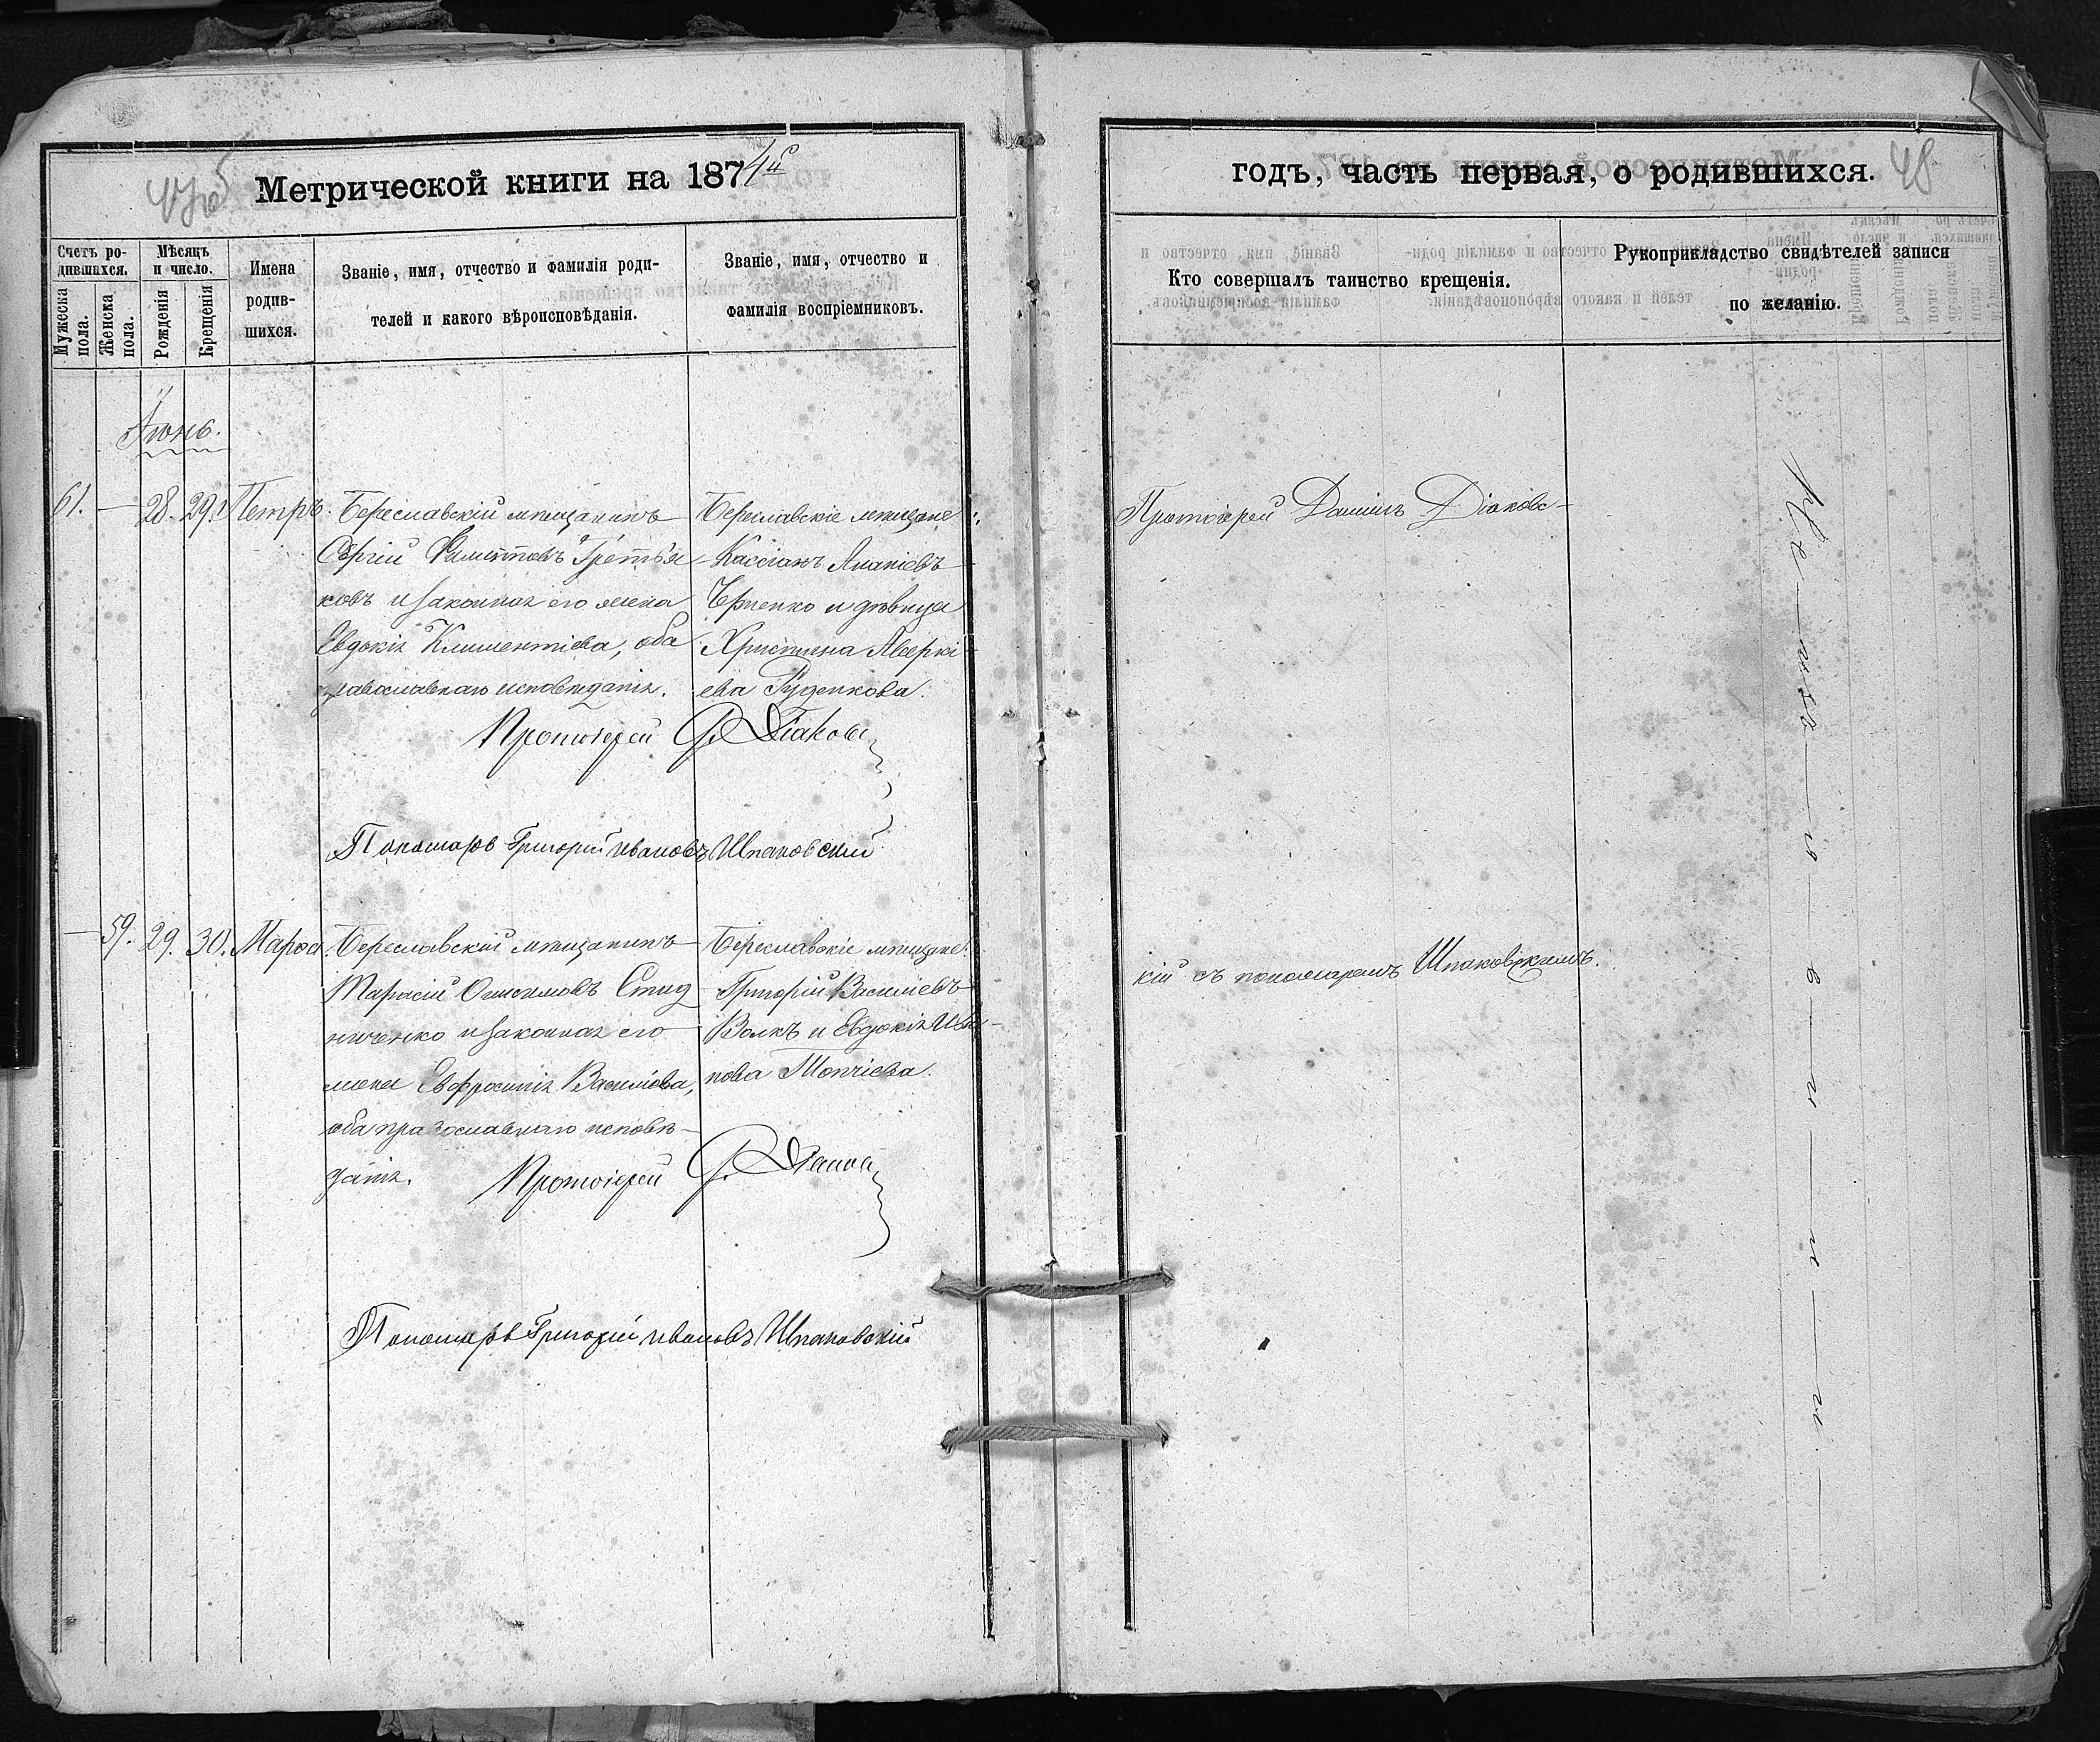 Метрической книги на 1874й
годъ, часть первая, о родившихся.
48
Счетъ родившихся.
Мужеска пола.
Женска пола.
Мѣсяцъ и число.
Рожденія
Крещенія
Имена родившихся.
Званіе, имя, отчество и фамилія роди-
телей и какого вѣроисповѣданія.
Званіе, имя, отчество и
фамилія воспріемниковъ.
Кто совершалъ таинство крещенія.
Рукоприкладство свидѣтелей записи
по желанію.
Іюнь.
61. — 28. 29. Петръ.
Береславскій мѣщанинъ
Сергій Третья
ковъ и законная его жена
Евдокія Климентіева, оба
православнаго исповѣданія.
Береславскіе мѣщане:
Кассіанъ Ананіевъ
и дѣвица
Христина Аверкі
ева Руденкова.
Протоіерей Даніилъ Діаковс-
Протоіерей Д. Діаковс
Пономарь Григорій Ивановъ Шпаковский
— 59. 29. 30. Марѳа.
Береславскій мѣщанинъ
Тарасій Онисимовъ Студ
ниченко и законная его
жена Евфросинія Василіева,
оба православнаго исповѣ-
данія.
Береславскіе мѣщане:
Григорій Василіевъ
Волкъ и Евдокія Ива-
нова Топчіева.
кій съ пономаремъ Шпаковскимъ.
Протоіерей Д. Діаков
Пономарь Григорій Ивановъ Шпаковскій